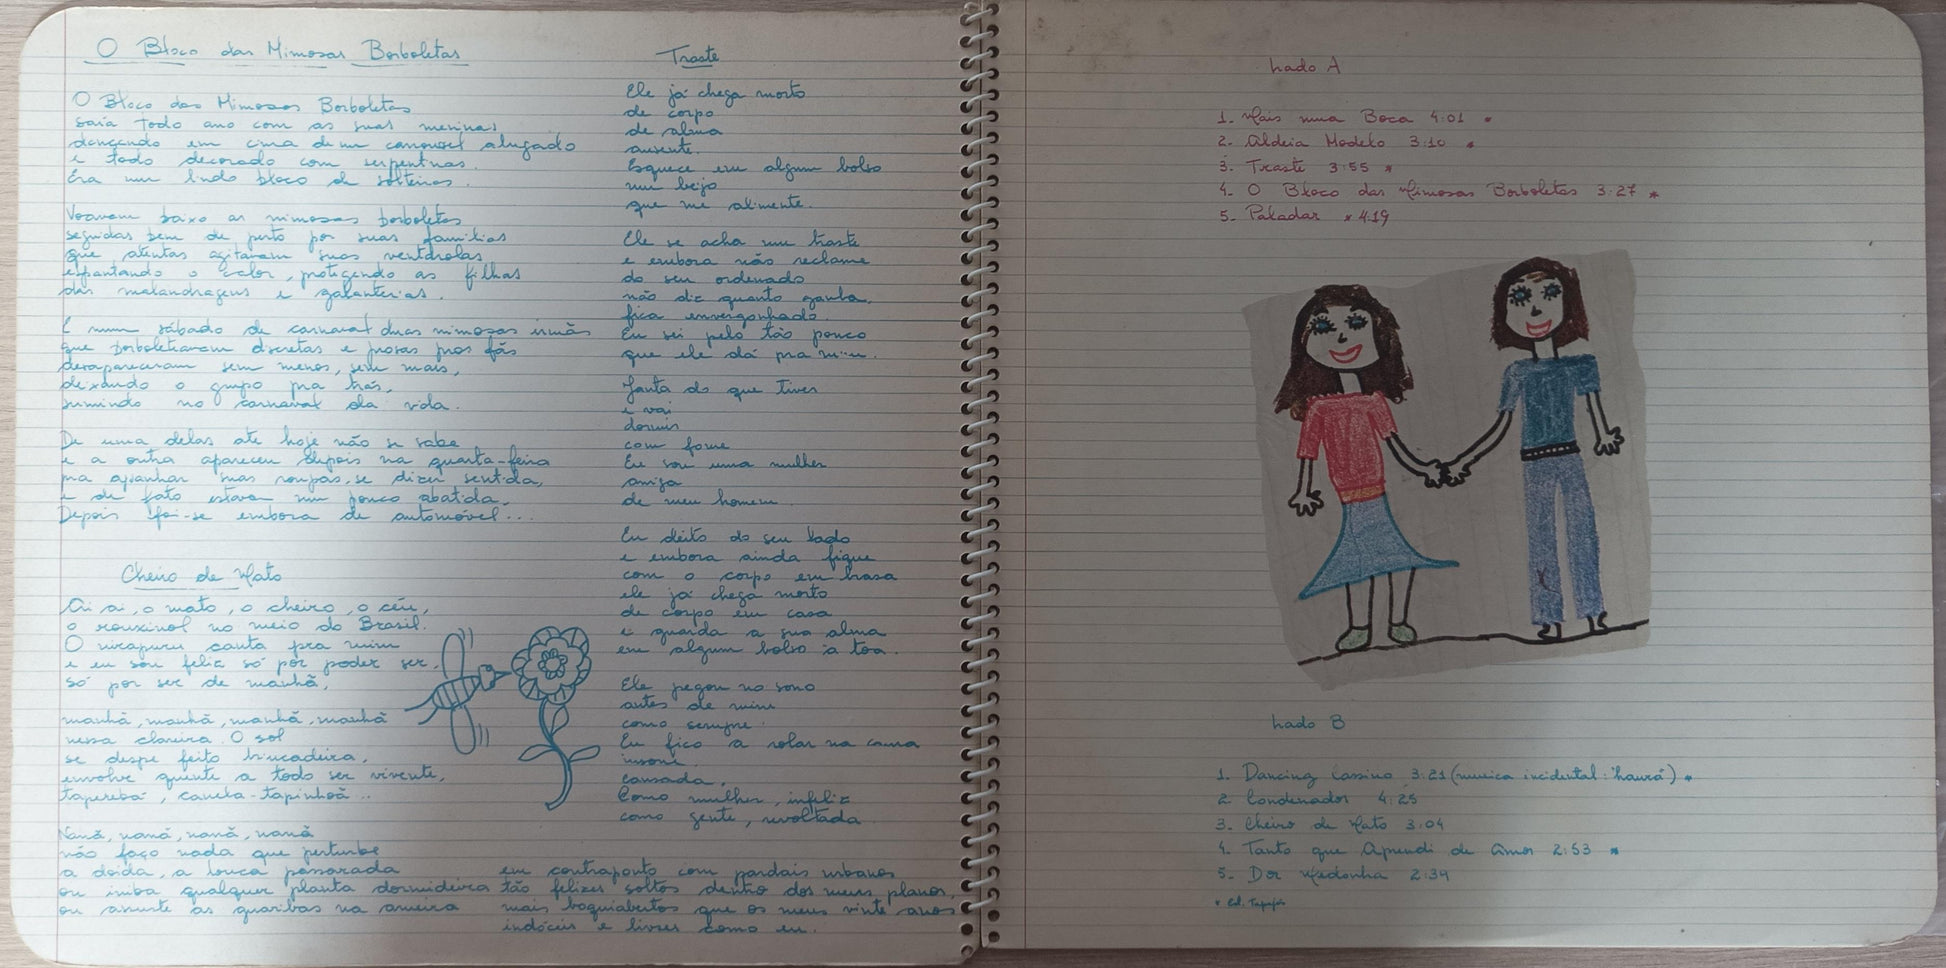 O Bloco das Mimosas Borboletas
O Bloco das Mimosas Borboletas
saía todo ano com as suas meninas
dançando em cima de um carrousel alugado
e todo decorado com serpentinas.
Era um lindo bloco de solteiras.
Voavam baixo as mimosas borboletas
seguidas bem de perto por suas famílias
que atentas agitavam suas ventarolas
espantando o calor, protegendo as filhas
das malandragens e galanterias.
E num sábado de carnaval duas mimosas irmãs
que borboletiavam discretas e prosas pros fãs
desapareceram sem menos, sem mais,
deixando o grupo pra trás,
sumindo no carnaval da vida.
De uma delas até hoje não se sabe
e a outra apareceu depois na quarta-feira
pra apanhar suas roupas, se dizer sentida,
e de fato estava um pouco abatida.
Depois foi-se embora de automóvel...
Cheiro de Mato
Ai ai, o mato, o cheiro, o céu,
o rouxinol no meio do Brasil.
O uirapuru canta pra mim
e eu sou feliz só por poder ser,
só por ser de manhã,
manhã, manhã, manhã, manhã
nessa clareira. O sol
se despe feito brincadeira,
envolve quente a todo ser vivente,
taperebá, canela-tapinhoã...
Nanã, nanã, nanã, nanã
não faço nada que perturbe
a doida, a louca passarada
ou iniba qualquer planta dormideira
ou assuste as guaribas na aroeira
em contraponto com pardais urbanos
tão felizes soltos dentro dos meus planos,
mais boquiabertos que os meus vinte anos
indóceis e livres como eu.
Traste
Ele já chega morto
de corpo
de alma
ausente.
Esquece em algum bolso
um beijo
que me alimente.
Ele se acha um traste
e embora não reclame
do seu ordenado
não diz quanto ganha,
fica envergonhado.
Eu sei pelo tão pouco
que ele dá pra mim.
Janta do que tiver
e vai
dormir
com fome
Eu sou uma mulher
amiga
de meu homem
Eu deito do seu lado
e embora ainda fique
com o corpo em brasa
ele já chega morto
de corpo em casa
e guarda a sua alma
em algum bolso à toa.
Ele pegou no sono
antes de mim
como sempre.
Eu fico a rolar na cama
insone.
cansada,
Como mulher, infeliz
como gente, revoltada.
Lado A
1. Mais uma Boca 4:01 *
2. Aldeia Modelo 3:10 *
3. Traste 3:55 *
4. O Bloco das Mimosas Borboletas 3:27 *
5. Paladar * 4:19
Lado B
1. Dancing Cassino 3:21 (musica incidental: 'Laurá') *
2. Condenados 4:25
3. Cheiro de Mato 3:04
4. Tanto que Aprendi de Amor 2:53 *
5. Dor Medonha 2:34
* Ed. Tapajós